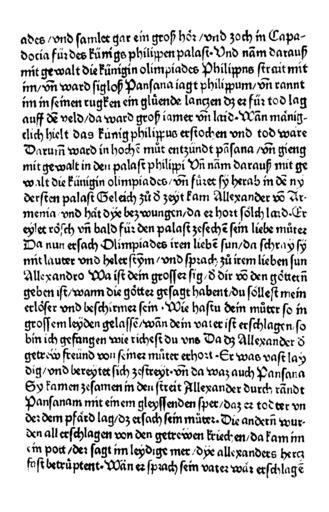 ades/vnd samlet gar ein groß hör/vnd zoch in Capa-
docia für des künigs philippen palast. Vnd nam darauß
mit gewalt die künigin olimpiades Philippus streit mit
im/vn̄ ward sigloß Pansana iagt philippum/vn̄ rannt
im in seinen rugken ein glüende lantzen dz er für tod lag
auff dē veld/da ward groß iamer vn̄ laid. Wan mānig-
clich hielt das künig philippus erstochen vnd tod ware
Darum̄ ward in hochē můt entzündt pāsana/vn̄ gieng
mit gewalt in den palast philippi Vn̄ nam darauß mit ge
walt die künigin olimpiades/vn̄ fůret sy herab in dē ny
dersten palast Geleich zů d̄ zeyt kam Allexander vō Ar-
menia vnd hāt dye bezwungen/da er hort sölch laid. Er
eylet rösch vn̄ bald für den palast zesehē sein liebe můter
Da nun ersach Olimpiades iren lieben sun/da schray sy
mit lauter vnd heler stym̄/vnd sprach zů irem lieben sun
Allexandro Wa ist dein grosser sig/d̄ dir vō den göttern̄
geben ist/wann die götter gesagt habent/du söllest mein
erlöser vnd beschirmer sein. Wie hastu dein můter so in
grossem leyden gelassē/wān dein vater ist erschlagen/so
bin ich gefangen wie richest du vns Da dz Allexander d̄
getrew freünd von seiner můter erhort. Er was vast lay
dig/vnd bereytet sich zestreyt. vn̄ da waz auch Pansana
Sy kamen zesamen in den streit Allexander durch rāndt
Pansanam mit einem gleyssenden sper/daz er tod ter vn
der dem pfärd lag/dz ersach sein můter. Die andern wur-
den all erschlagen von den getrewen kriechen/da kam im
ein pott/der sagt im leydige mer/dye allexanders hertz
fast betrůptent. Wān er sprach sein vater wär erschlagē